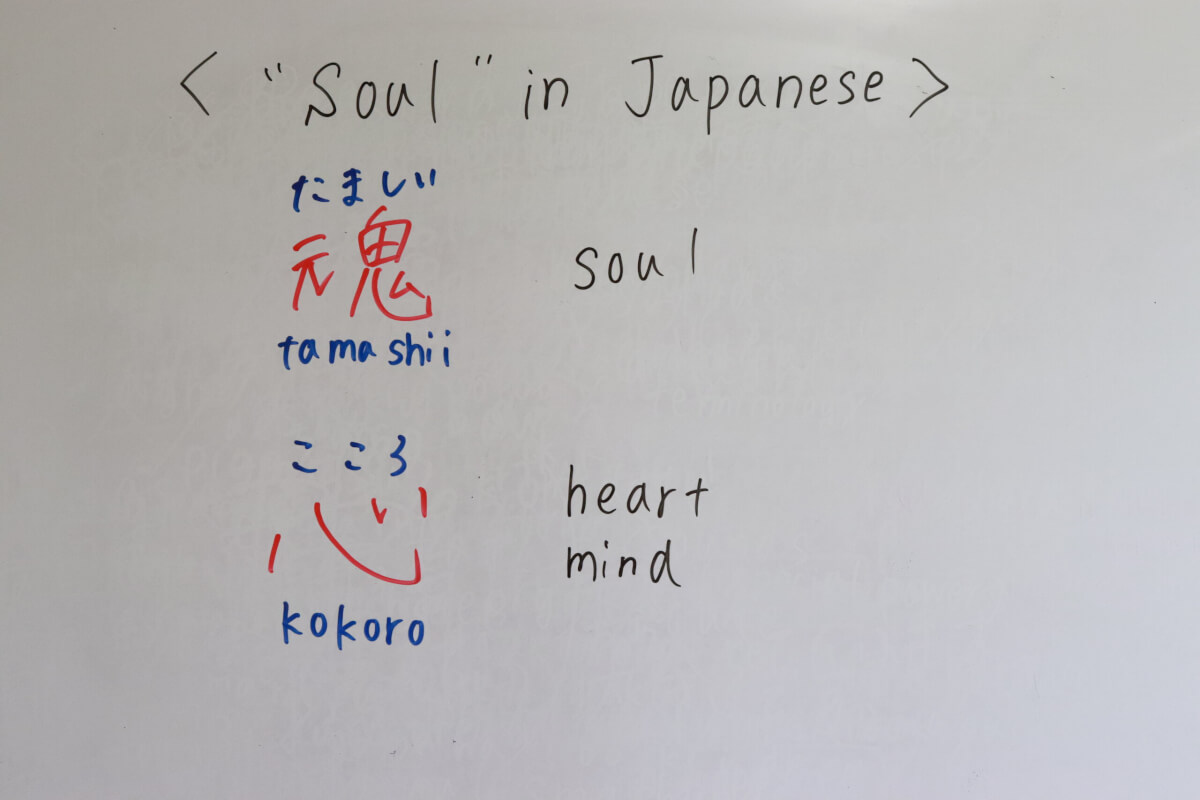 < "Soul" in Japanese >
たましい
魂 soul
tamashii
こころ
心 heart
mind
kokoro